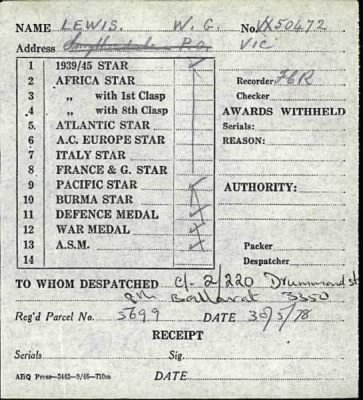 NAME LEWIS. W. G. No. VX50472
Address Smythesdale P.O. VIC
1 1939/45 STAR
2 AFRICA STAR
3 „ with 1st Clasp
4 „ with 8th Clasp
5. ATLANTIC STAR
6 A.C. EUROPE STAR
7 ITALY STAR
8 FRANCE & G. STAR
9 PACIFIC STAR
10 BURMA STAR
11 DEFENCE MEDAL
12 WAR MEDAL
13 A.S.M.
14
Recorder
Checker
AWARDS WITHHELD
Serials:
REASON:
AUTHORITY:
Packer
Despatcher
TO WHOM DESPATCHED C/- 2/220 Drummond st
Ballarat 3350
Reg'd Parcel No. 5699 DATE 30/5/78
RECEIPT
Serials Sig.
AHQ Press—3443—9/48—710m DATE